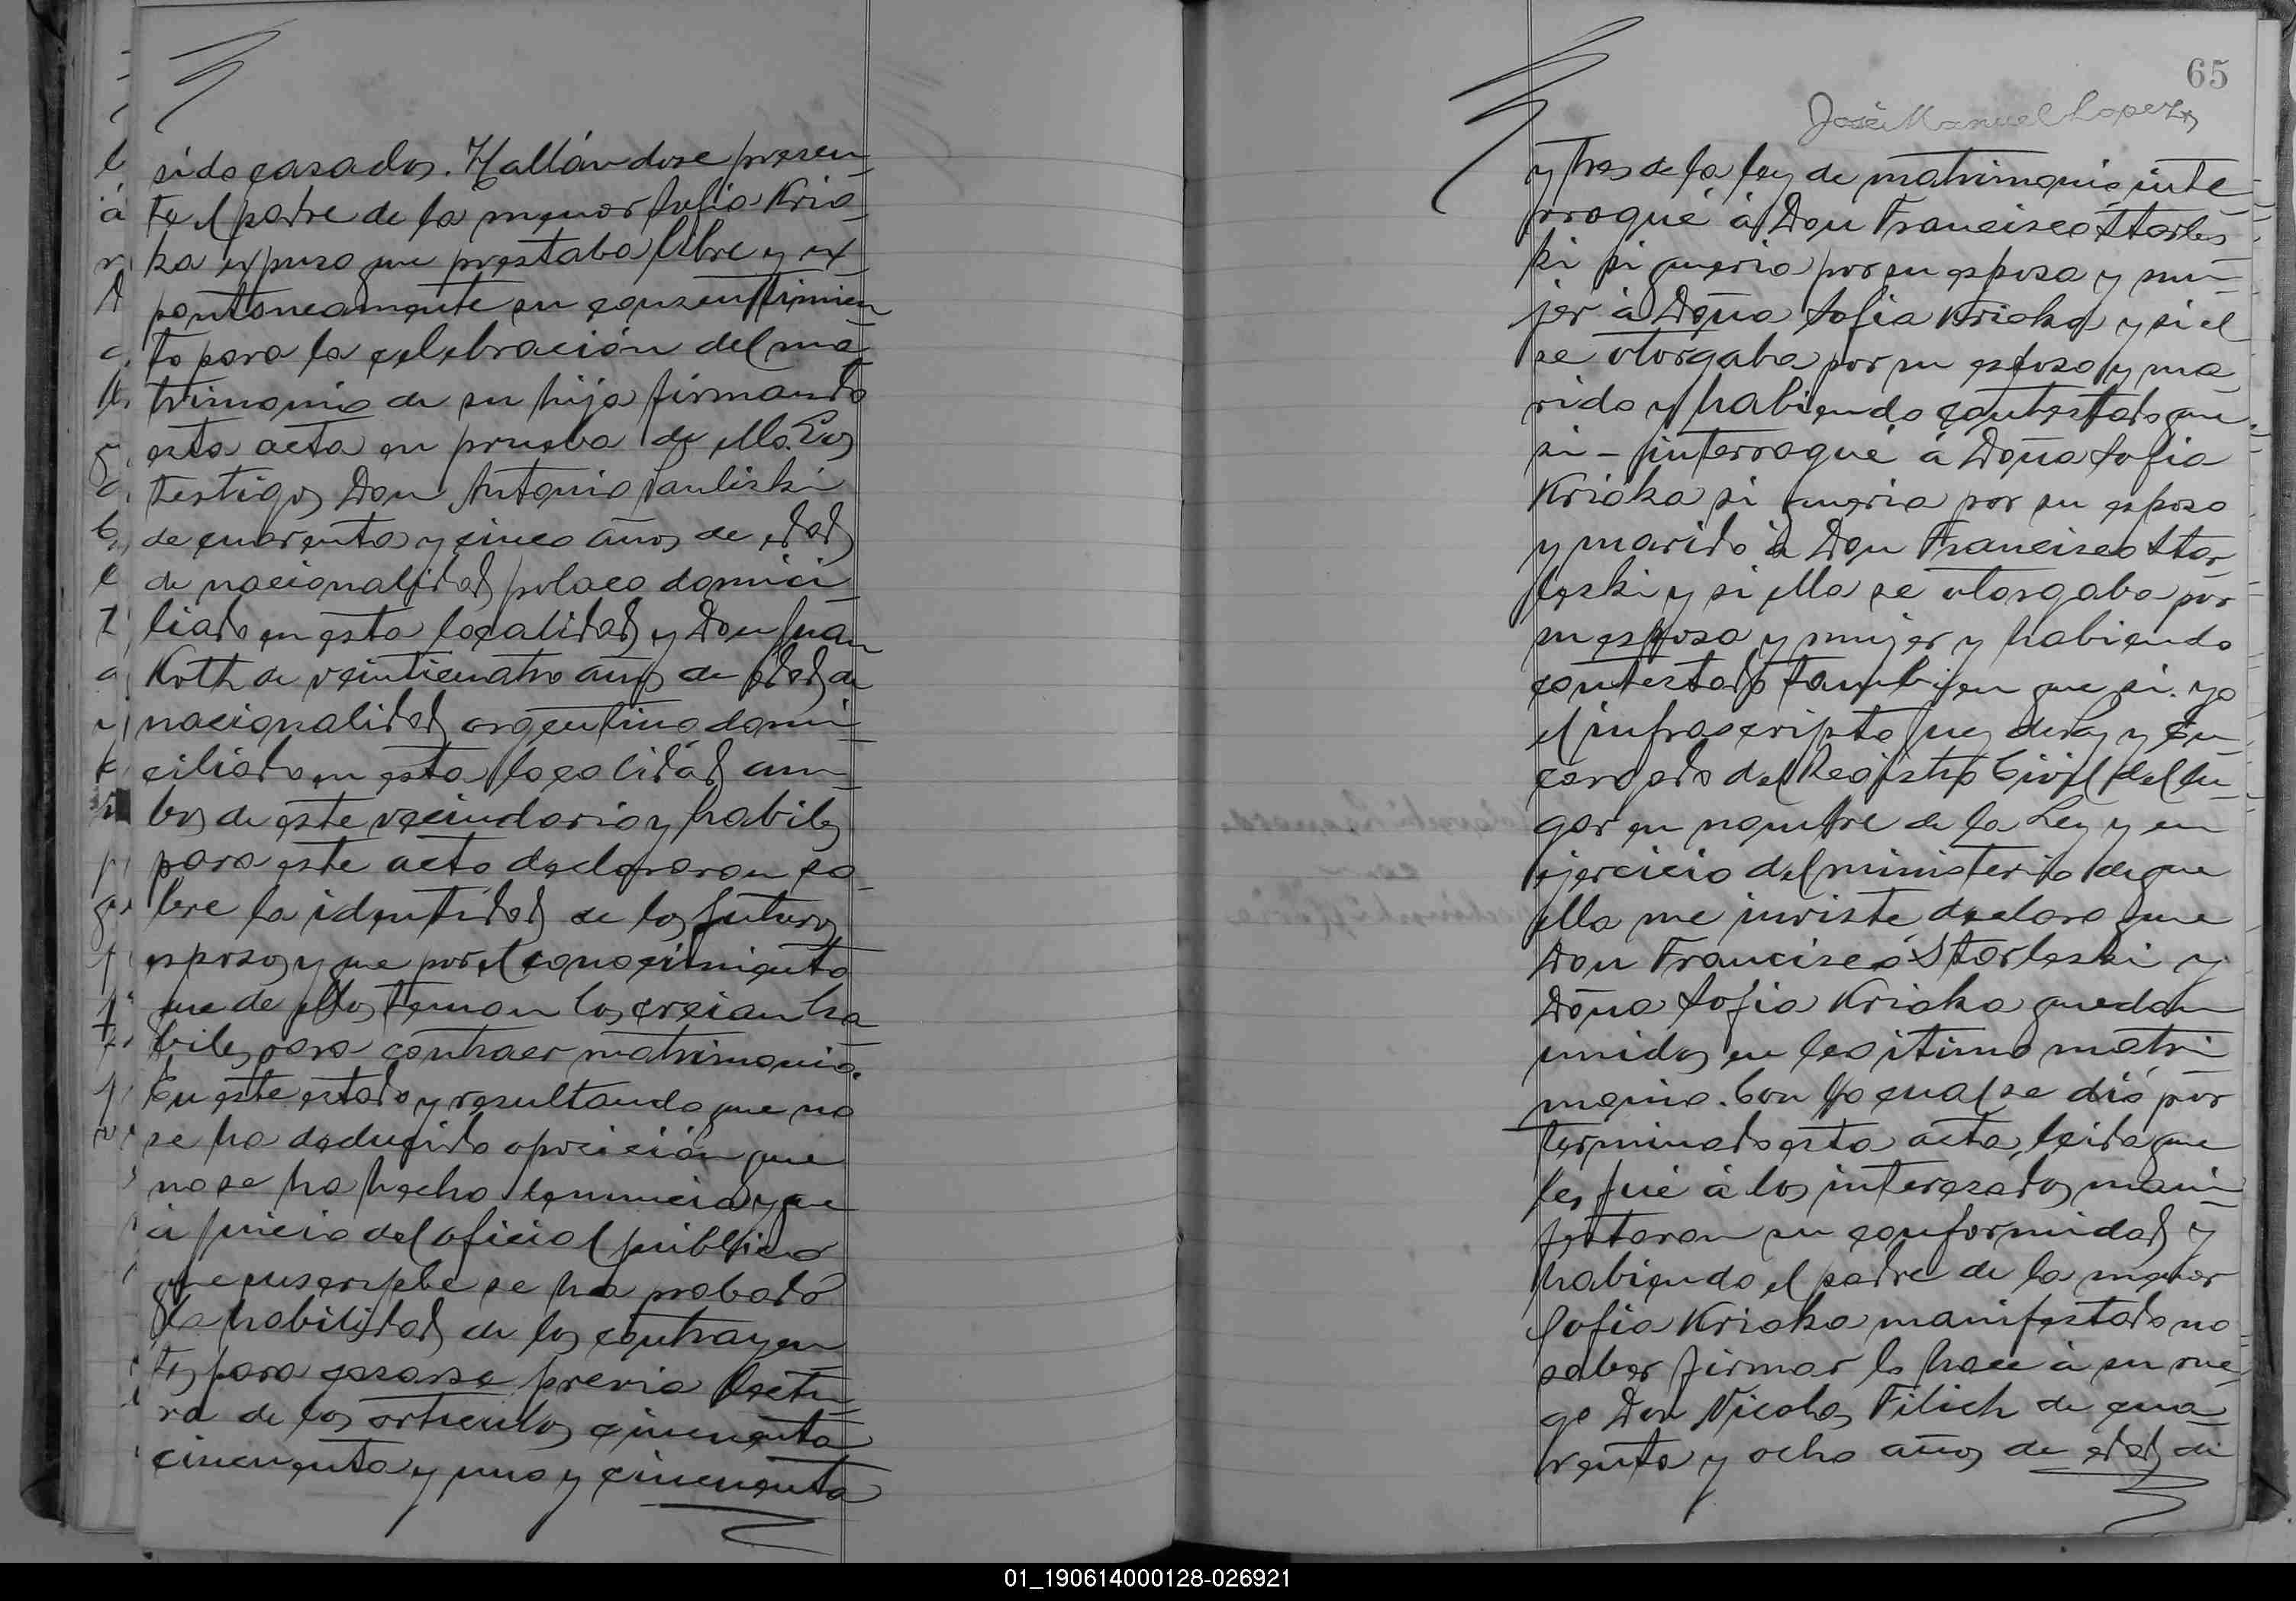 sido casados. Hallándose presen
te el padre de la menor Sofia Kria
ka expuso que prestaba libre y ex
pontaneamente su consentimien
to para la celebración del ma
trimonio de su hija firmando
esta acta en prueba de ello. Los
testigos Don Antonio Pauliski
de cuarenta y cinco años de edad
de nacionalidad polaco domici
liado en esta localidad y Don Juan
Koth de veinticuatro años de edad de
nacionalidad argentino domi
ciliado en esta localidad am
bos de este vecindario y habiles
para este acto declararon so
bre la identidad de los futuros
esposos y que por el conocimiento
que de ellos tenian los creian ha
biles para contraer matrimonio.
En este estado y resultando que no
se ha deducido oposición que
no se ha hecho denuncia y que
á juicio del oficial público
que suscribe se ha probado
la habilidad de los contrayen
tes para casarse previa lectu
ra de los articulos cincuenta
cincuenta y uno y cincuenta
65
José Manuel Lopez
y tres de la ley de matrimonio inte
rrogué á Don Francisco Starles
ki si queria por su esposa y mu
jer á Doña Sofia Kriaka y si el
se otorgaba por su esposo y ma
rido y habiendo contestado que
si - interrogué á Doña Sofia
Kriaka si queria por su esposo
y marido á Don Francisco Star
leski y si ella se otorgaba por
su esposa y mujer y habiendo
contestado tambien que si. yo
el infrascripto Juez de Paz y En
cargado del Registro Civil del lu
gar en nombre de la Ley y en
ejercicio del ministerio de que
ella me inviste declaro que
Don Francisco Starleski y
Doña Sofia Kriaka quedan
unidos en legitimo matri
monio. Con lo cual se dió por
terminado esta acta, leida que
les fué á los interesados mani
festaron su conformidad y
habiendo el padre de la menor
Sofia Kriaka manifestado no
saber firmar lo hace á su rue
go Don Nicolas Filich de cua
renta y ocho años de edad de
01_190614000128-026921